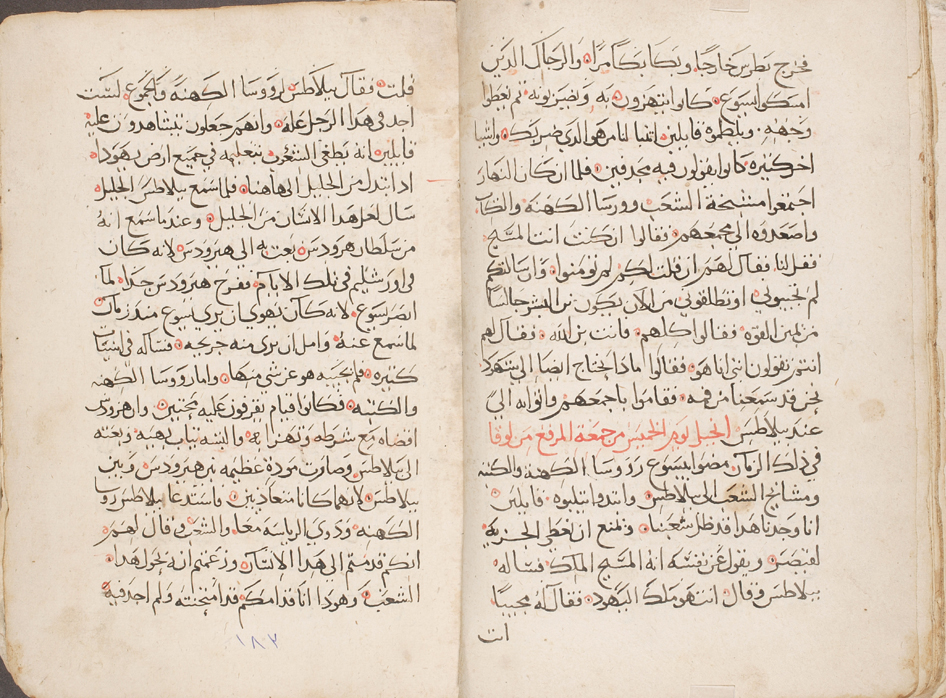 فخرج بطرس خارجا وبكا بكا مرا والرجال الذين
امسكوا يسوع كانوا ينتهرون به ويضربونه ثم يغطوا
وجهه ويلطموه قايلين اتنبا لنا من هو الذي ضربك واشيا
اخر كثيره كانوا يقولون فيه مجدفين فلما ان كان النهار
اجتمعوا مشيخة الشعب وروسا الكهنه والكتاب
واصعدوه الى مجمعهم وقالوا ان كنت انت المسيح
فقل لنا فقال لهم ان قلت لكم لم تومنوا وان سالتكم
لم تجيبوني او تطلقوني من الان يكون بن البشر جالسا
من يمين القوه فقالوا كلهم فانت بن الله فقال لهم
انتم تقولون انني انا هو فقالوا ماذا نحتاج ايضا الى شهود
نحن قد سمعنا من فيه فقاموا باجمعهم واتوا به الى
عند بيلاطس انجيل يوم الخميس من جمعة المرفع من لوقا
في ذلك الزمان مضوا بيسوع روسا الكهنة والكتبه
ومشايخ الشعب الى بيلاطس وابتدوا يتلبوه قايلين
انا وجدنا هدا قد ظل شعبنا ويمنع ان نعطى الجزية
لقيصر ويقول عن نفسه انه المسيح الملك فساله
بيلاطس وقال انت هو ملك اليهود فقال له مجيبا
انت
قلت فقال بيلاطس لروسا الكهنة والجموع لست
اجد في هدا الرجل عله وانهم جعلون يتشاهدون عليه
قايلين انه يطغي الشعب بتعليمه في جميع ارض يهودا
اد ابتدا من الجليل الى هاهنا فلما سمع بيلاطس الجليل
سال لعل هدا الانسان من الجليل وعند ما سمع انه
من سلطان هرودس بعث به الى هيرودس لانه كان
في اورشليم في تلك الايام ففرح هيرودس جدا لما
ابصر يسوع لانه كان يهوي ان يري يسوع مند زمان
لما سمع عنه وامل ان يري منه جريحه فساله في اشيا
كثيره فلم يجبه هو عن شي منها واما روسا الكهنه
والكتبه فكانوا قيام يقرفون عليه مجتهدين وان هرودس
اقصاه مع شرطه وتهزا به والبسه تياب بهيه وبعته
الى بيلاطس وصارت موده عظيمه بين هيرودس وبين
بيلاطس لانهما كانا متعاديين فاستدعا بيلاطس روسا
الكهنه ودوي الرياسه معا والشعب وقال لهم
انكم قدمتم الى هدا الانسان وزعمتم انه يحول هدا
الشعب وهودا انا قدامكم قد امتحنته ولم اجد فيه
١٨٢